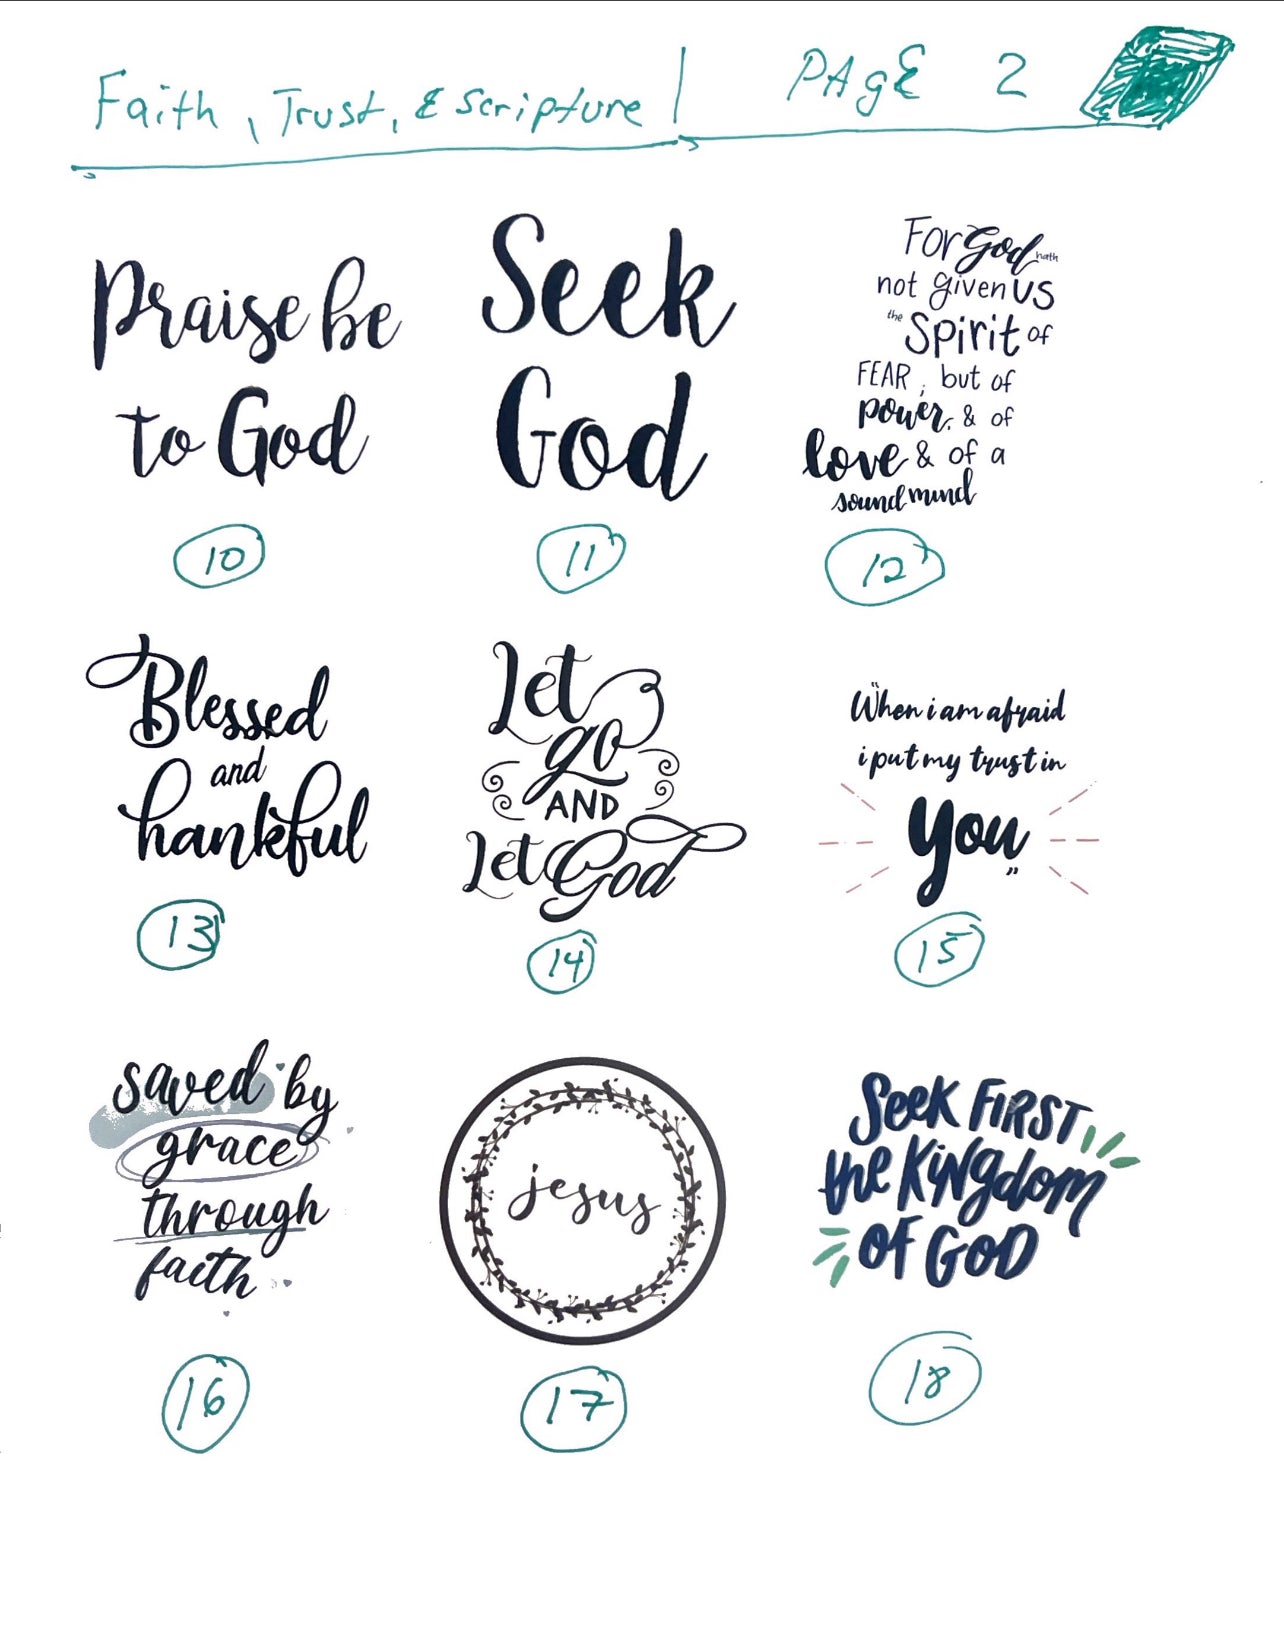 Faith, Trust, & Scripture | PAgE 2
Praise be
to God
10
Seek
God
11
For God hath
not given us
the Spirit of
FEAR, but of
power, & of
love & of a
sound mind
12
Blessed
and
hankful
13
Let
go
AND
Let God
14
"When i am afraid
i put my trust in
you"
15
saved by
grace
through
faith
16
jesus
17
Seek FIRST
the Kingdom
of GOD
18